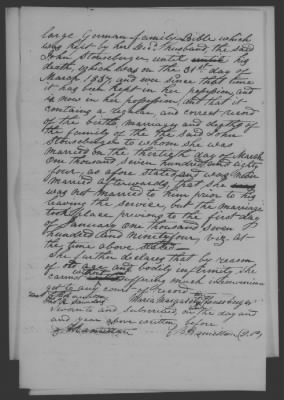 large German family Bible which
was kept by her Decd husband the said
John Stonesberger until
death, which was on the 31st day of
March 1837, and ever since that time
it has been kept in her possession, and
is now in her possession, and that it
contains a regular, and correct record
of the births marriages and deaths of
the family of the said John
Stonesberger to whom she was
married on the thirtieth day of March
One thousand seven hundred and eighty
four, as afore stated and was never
married afterwards, that she
was not married to him prior to his
leaving the service, but the marriage
took place previous to the first day
of January one thousand seven
hundred and ninety four, viz. at
the time above stated
She further declares that by reason
of old age and bodily infirmity she
cannot without suffering much inconvenience
get to any court of record.
Maria Margaret Stonesberger
Sworn to and subscribed, on the day and
and year above written before
Hamilton (J.P.)